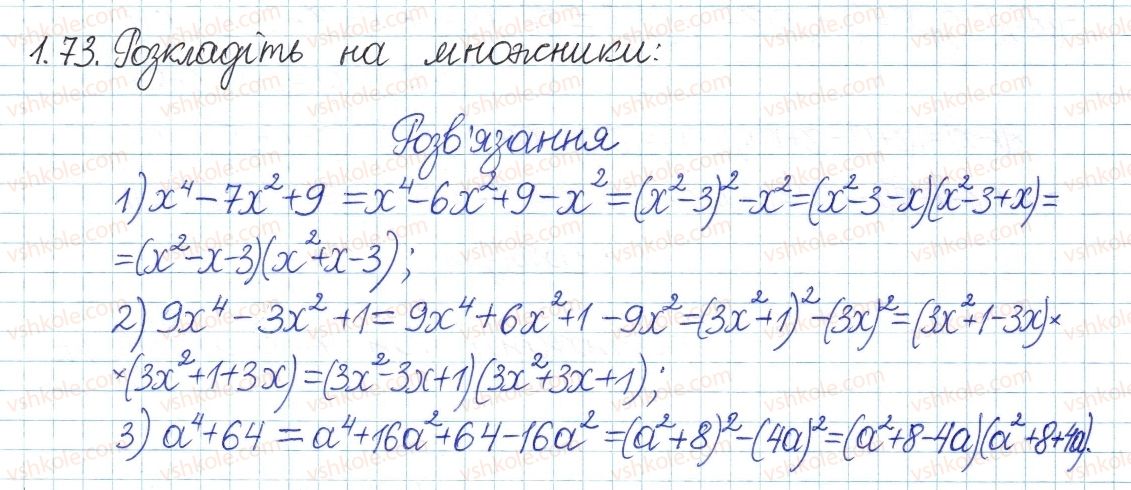 1.73. Розкладіть на множники:
Розв'язання
1) x⁴ - 7x² + 9 = x⁴ - 6x² + 9 - x² = (x² - 3)² - x² = (x² - 3 - x)(x² - 3 + x) =
= (x² - x - 3)(x² + x - 3);
2) 9x⁴ - 3x² + 1 = 9x⁴ + 6x² + 1 - 9x² = (3x² + 1)² - (3x)² = (3x² + 1 - 3x)×
×(3x² + 1 + 3x) = (3x² - 3x + 1)(3x² + 3x + 1);
3) a⁴ + 64 = a⁴ + 16a² + 64 - 16a² = (a² + 8)² - (4a)² = (a² + 8 - 4a)(a² + 8 + 4a).